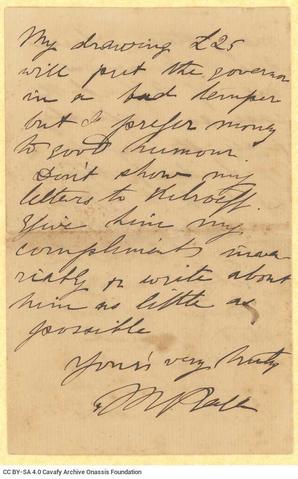 My drawing £25
will put the governor
in a bad temper
but I prefer money
to good humour.
Don't show my
letters to
Give him my
compliments inva
riably & write about
him as little as
possible
Yours very truly
CC BY-SA 4.0 Cavafy Archive Onassis Foundation